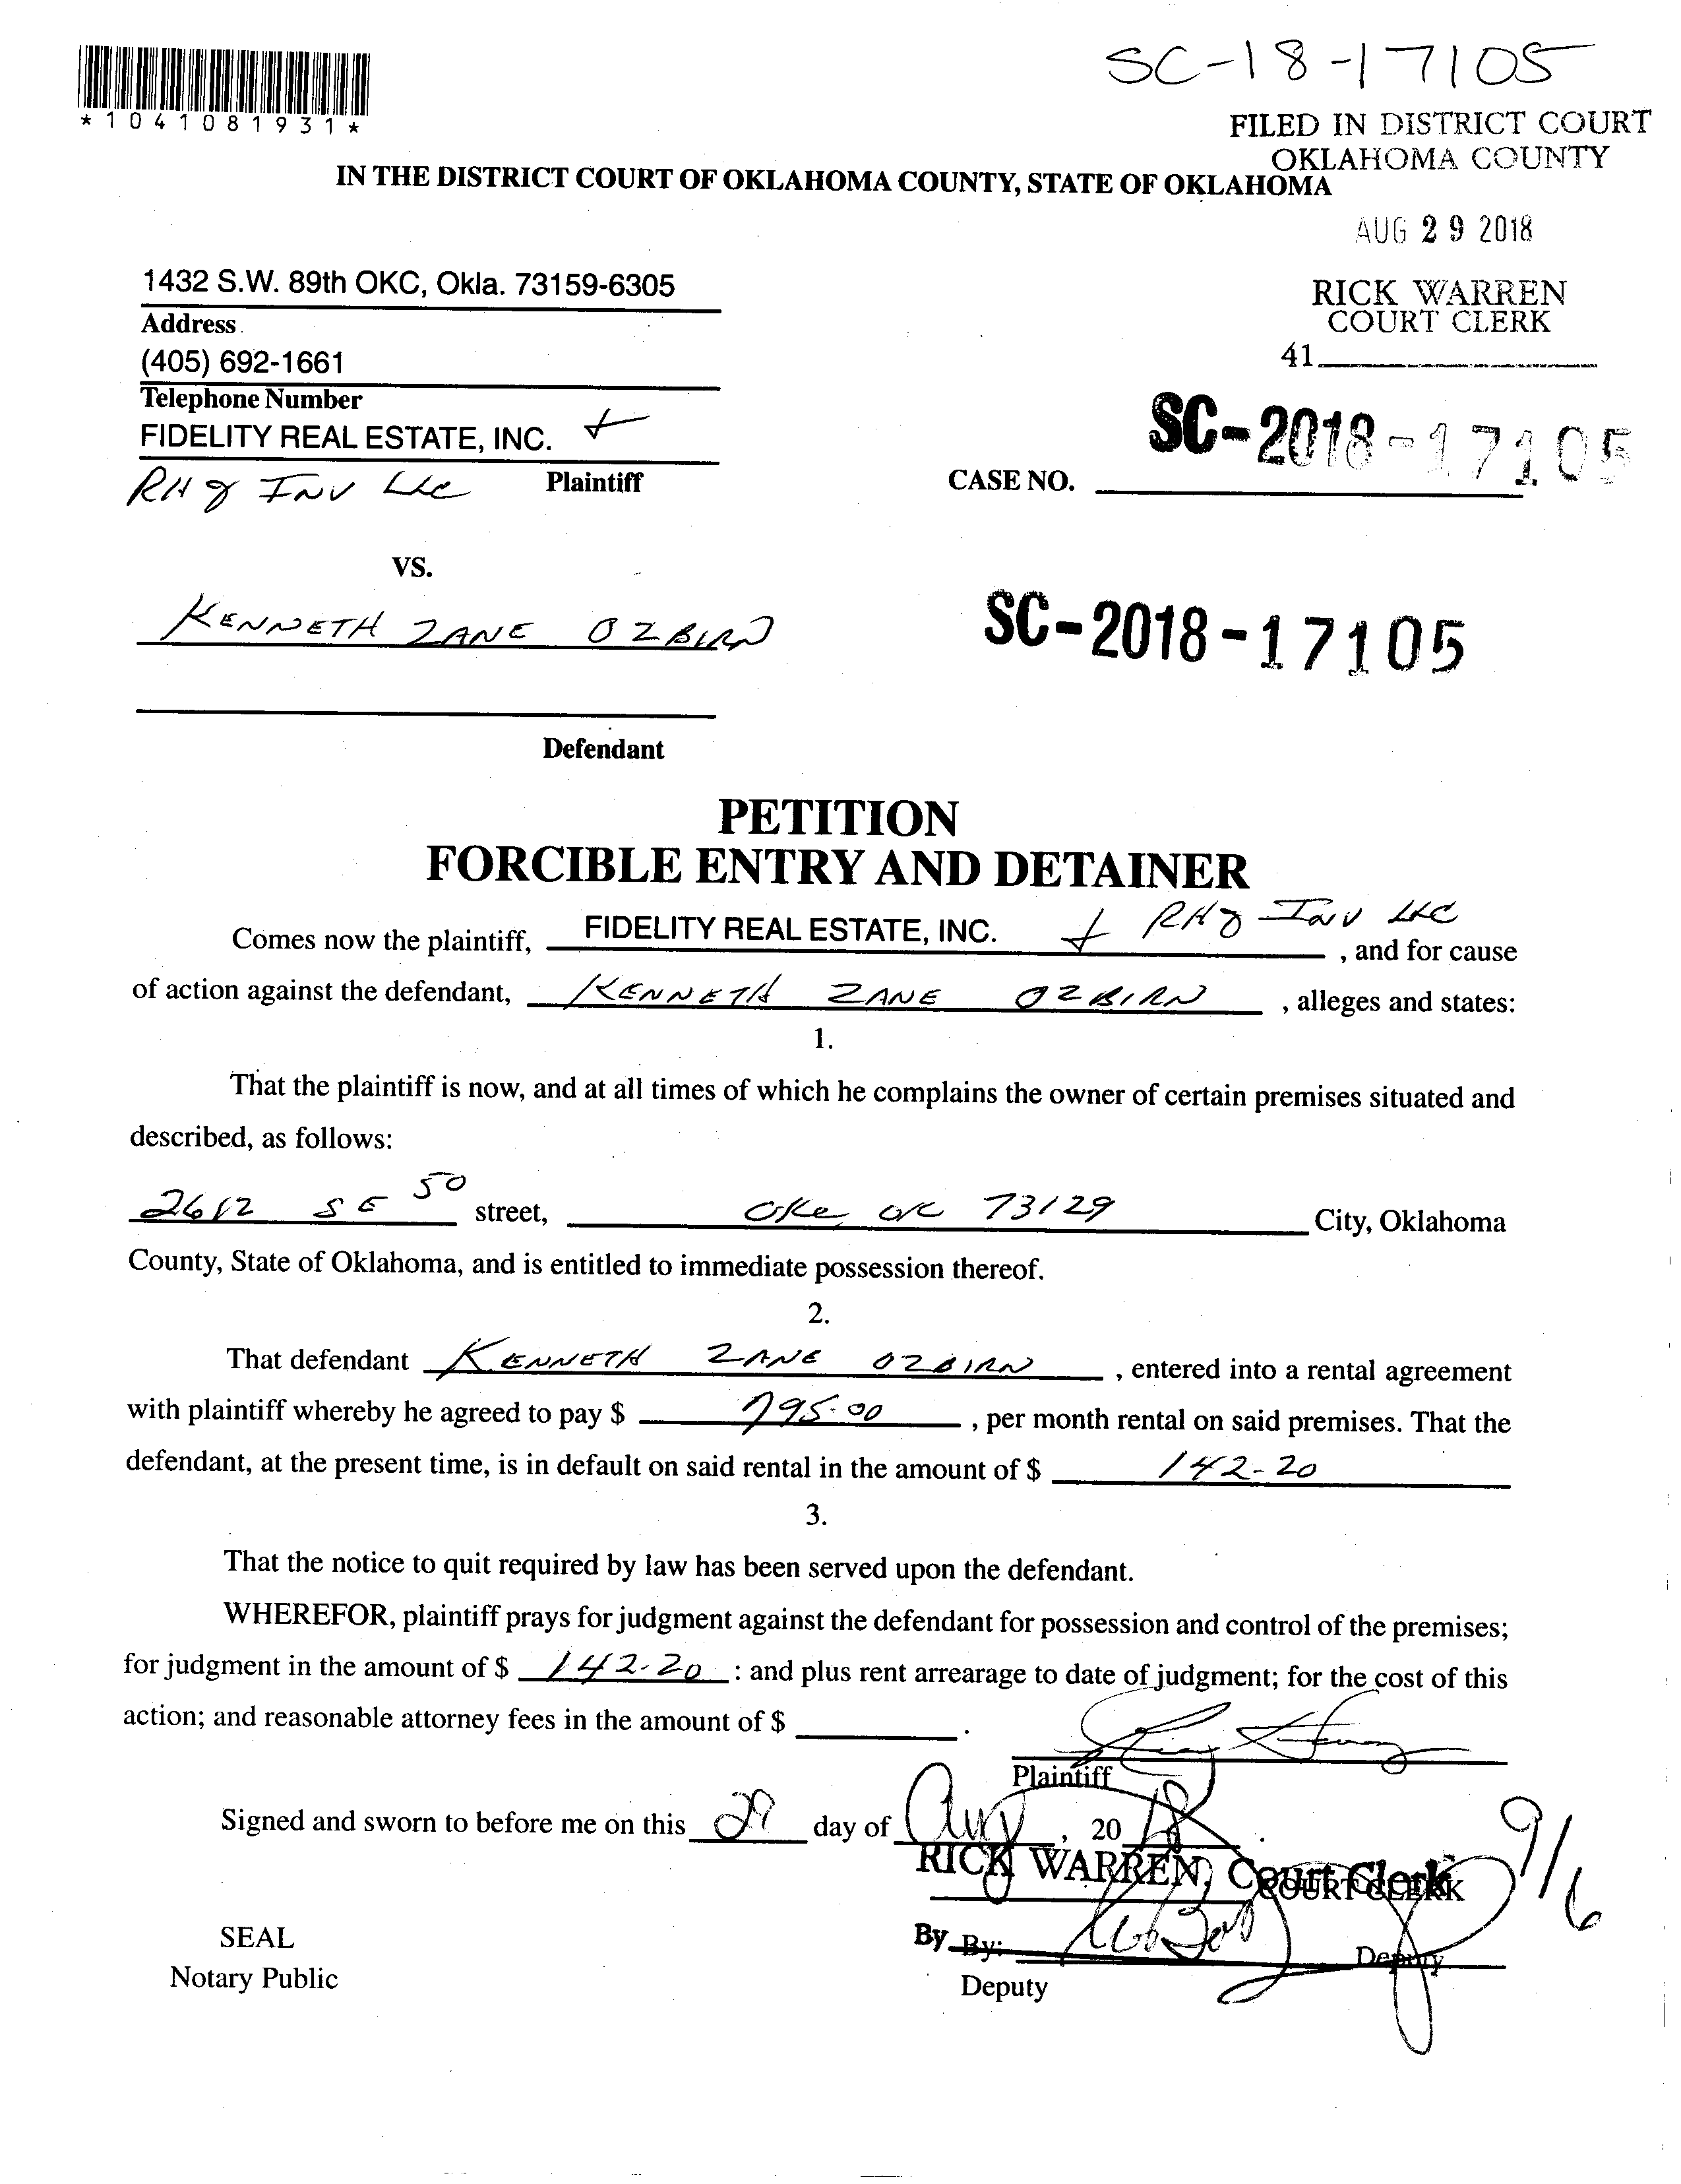 SC-18-17105
*1041081931*
FILED IN DISTRICT COURT
OKLAHOMA COUNTY
IN THE DISTRICT COURT OF OKLAHOMA COUNTY, STATE OF OKLAHOMA
AUG 29 2018
1432 S.W. 89th OKC, Okla. 73159-6305
RICK WARREN
Address
COURT CLERK
(405) 692-1661
41
Telephone Number
FIDELITY REAL ESTATE, INC. +
SC-2018-17105
RHJ INV LLC Plaintiff
CASE NO.
VS.
KENNETH ZANE OZBIRN
SC-2018-17105
Defendant
PETITION
FORCIBLE ENTRY AND DETAINER
Comes now the plaintiff, FIDELITY REAL ESTATE, INC. + RHJ INV LLC , and for cause
of action against the defendant, KENNETH ZANE OZBIRN , alleges and states:
1.
That the plaintiff is now, and at all times of which he complains the owner of certain premises situated and
described, as follows:
2612 SE 50 street, OKC OK 73129 City, Oklahoma
County, State of Oklahoma, and is entitled to immediate possession thereof.
2.
That defendant KENNETH ZANE OZBIRN , entered into a rental agreement
with plaintiff whereby he agreed to pay $ 795.00 , per month rental on said premises. That the
defendant, at the present time, is in default on said rental in the amount of $ 142-20
3.
That the notice to quit required by law has been served upon the defendant.
WHEREFOR, plaintiff prays for judgment against the defendant for possession and control of the premises;
for judgment in the amount of $ 142.20 : and plus rent arrearage to date of judgment; for the cost of this
action; and reasonable attorney fees in the amount of $ .
Plaintiff
Signed and sworn to before me on this 29 day of Aug , 2018 .
9/6
RICK WARREN, Court Clerk
COURT CLERK
SEAL
By By: Deputy
Notary Public
Deputy